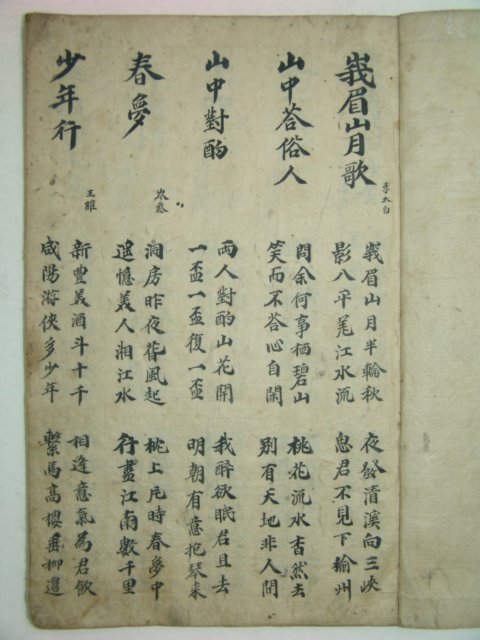 峩眉山月歌
李太白
峩眉山月半輪秋
影入平羌江水流
夜發清溪向三峽
思君不見下揄州
山中荅俗人
問余何事栖碧山
笑而不荅心自閑
桃花流水杳然去
別有天地非人間
山中對酌
兩人對酌山花開
一盃一盃復一盃
我醉欲眠君且去
明朝有意抱琴來
春夢
岑參
洞房昨夜春風起
遥憶美人湘江水
枕上片時春夢中
行盡江南數千里
少年行
王維
新豊美酒斗十千
咸陽游俠多少年
相逢意氣為君飮
繫馬高樓垂柳邊